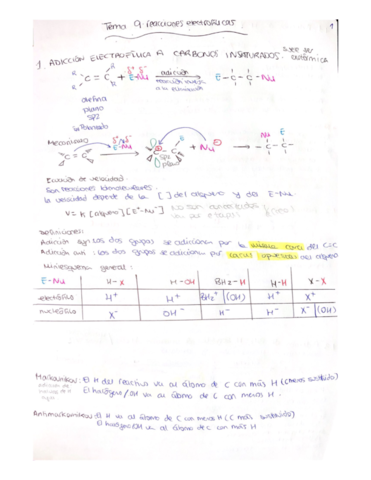 Tema 9 reacciones electrofílicas
1
1. ADICCIÓN ELECTROFÍLICA A CARBONOS INSATURADOS: suele ser
C = C + E-Nu adicción E - C - C - Nu
reacción
a la eliminación
plano
sp2
Mecanismo
C = C E-Nu C - C + Nu Nu E
sp2
Ecuación de velocidad
Son reacciones bimoleculares
la velocidad depende de la [ ] del alqueno y del E-Nu
V= K [alqueno][E-Nu] no son concertadas
Definiciones:
Adición syn: los dos grupos se adicionan por la misma cara del C=C
Adición anti: los dos grupos se adicionan por caras opuestas del alqueno
Miniesquema general:
E-Nu H-X H-OH BH2-H H-H X-X
electrófilo H+ H+ BH2+ (OH) H+ X+
nucleófilo X- OH- H- H- X- (OH)
Markovnikov: El H del reactivo va al átomo de C con más H (menos sustituido)
El halógeno/OH va al átomo de C con menos H.
Antimarkovnikov: El H va al átomo de C con menos H (C más sustituido)
El halógeno/OH va al átomo de C con más H